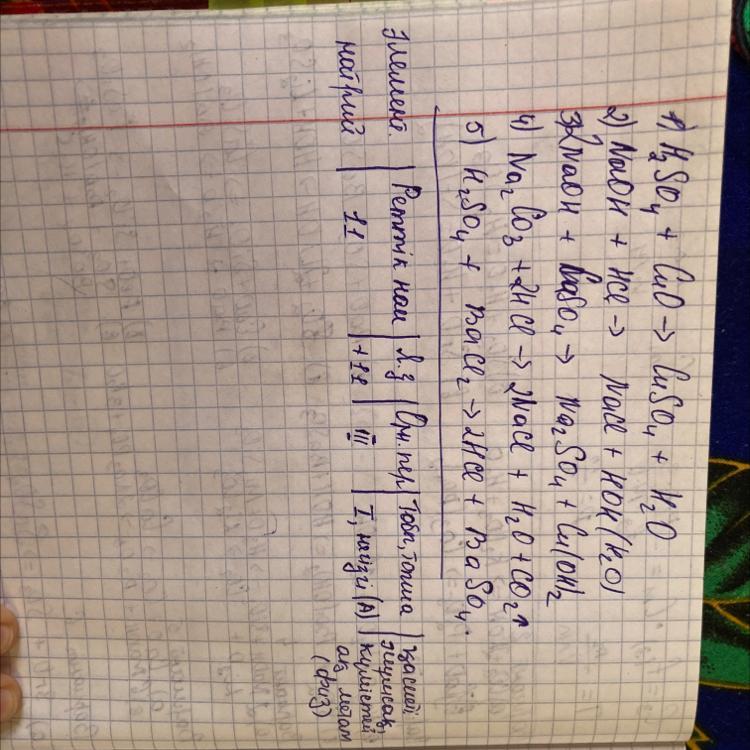 1) H₂SO₄ + CuO → CuSO₄ + H₂O
2) NaOH + HCl → NaCl + HOH (H₂O)
3) 2NaOH + CuSO₄ → Na₂SO₄ + Cu(OH)₂
4) Na₂CO₃ + 2HCl → 2NaCl + H₂O + CO₂↑
5) H₂SO₄ + BaCl₂ → 2HCl + BaSO₄.
Элемент. | Реттік ном | Я.з | Орн. пер | Тобы, топша
натрий | 11 | +11 | III | I, негізгі (А) | күмістей
ақ метал
(физ)